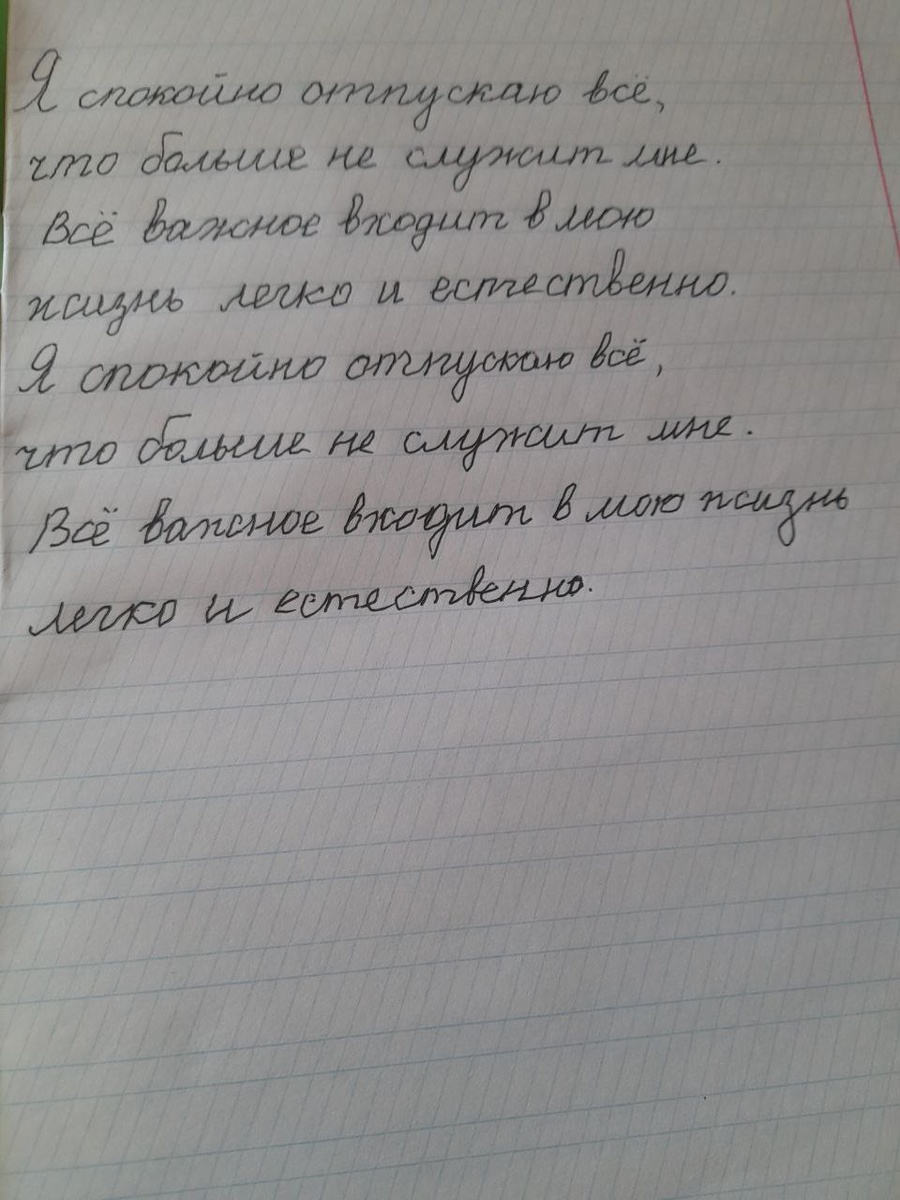 Я спокойно отпускаю всё,
что больше не служит мне.
Всё важное входит в мою
жизнь легко и естественно.
Я спокойно отпускаю всё,
что больше не служит мне.
Всё важное входит в мою жизнь
легко и естественно.